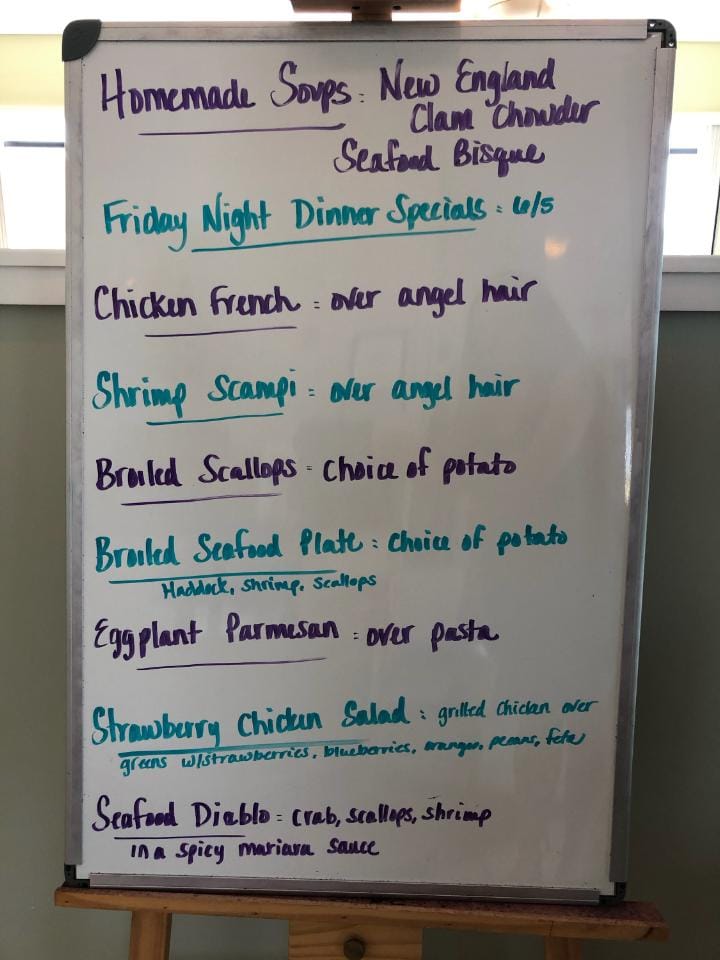 Homemade Soups: New England
Clam Chowder
Seafood Bisque
Friday Night Dinner Specials: 6/5
Chicken French: over angel hair
Shrimp Scampi: over angel hair
Broiled Scallops: choice of potato
Broiled Seafood Plate: choice of potato
Haddock, shrimp, scallops
Eggplant Parmesan: over pasta
Strawberry Chicken Salad: grilled chicken over
greens w/strawberries, blueberries, oranges, pecans, feta
Seafood Diablo: crab, scallops, shrimp
in a spicy mariara sauce